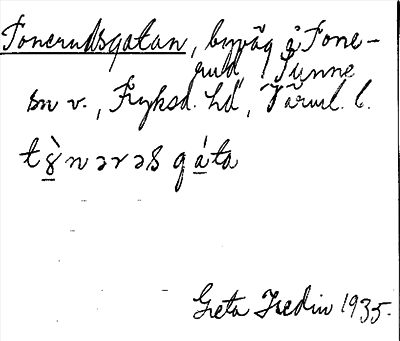 Tonerudsgatan, byväg i Tone-
rud, Gunne
sn v., Fryksd. hd, Värml. l.
tò̤nərəs gáta
Greta Hedin 1935.